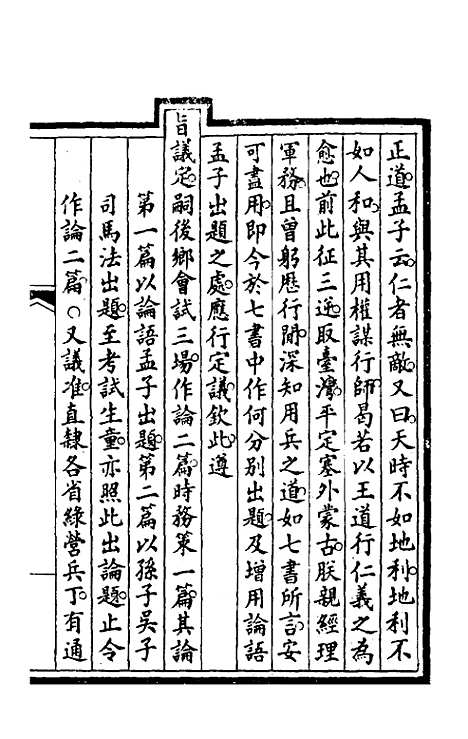 正道孟子云仁者無敵又曰天時不如地利地利不
如人和與其用權謀行師曷若以王道行仁義之為
愈也前此征三逆取臺灣平定塞外蒙古朕親經理
軍務且曾躬歷行間深知用兵之道如七書所言安
可盡用即今於七書中作何分別出題及增用論語
孟子出題之處應行定議欽此遵
旨議定嗣後鄉會試三場作論二篇時務策一篇其論
第一篇以論語孟子出題第二篇以孫子吳子
司馬法出題至考試生童亦照此出論題止令
作論二篇○又議准直隸各省綠營兵丁有通